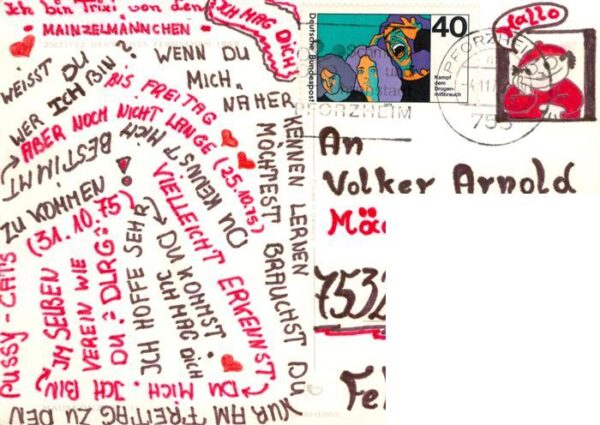 Ich bin von den
MAINZELMÄNNCHEN
ICH MAG DICH!
ZWEITES DEUTSCHES FERNSEHEN
WEISST DU
WER ICH BIN?
BIS FREITAG
ABER NOCH NICHT LANGE (25.10.75)
DU KENNST MICH
BESTIMMT
VIELLEICHT ERKENNST
DU MICH. ICH BIN
IM SELBEN
VEREIN WIE
DU? DLRG?
(31.10.75)
WENN DU
MICH
NÄHER
KENNEN LERNEN
MÖCHTEST BRAUCHST DU
NUR AM FREITAG ZU DEN
PUSSY-CATS
ZU KOMMEN!
ICH HOFFE SEHR
DU KOMMST.
ICH MAG DICH
Deutsche Bundespost
40
Kampf
dem
Drogen-
mißbrauch
PFORZHEIM
PFORZHEIM
753
Hallo
An
Volker Arnold
7532
Fe